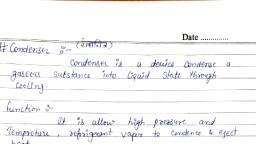 Date ..............
# Condenser :- (संघनित्र)
Condenser is a device Condense a
gaseous substance into liquid State through
Cooling.
Function :-
It is allow high pressure and
Temprature, refrigerant vapre to condence & eject
heat